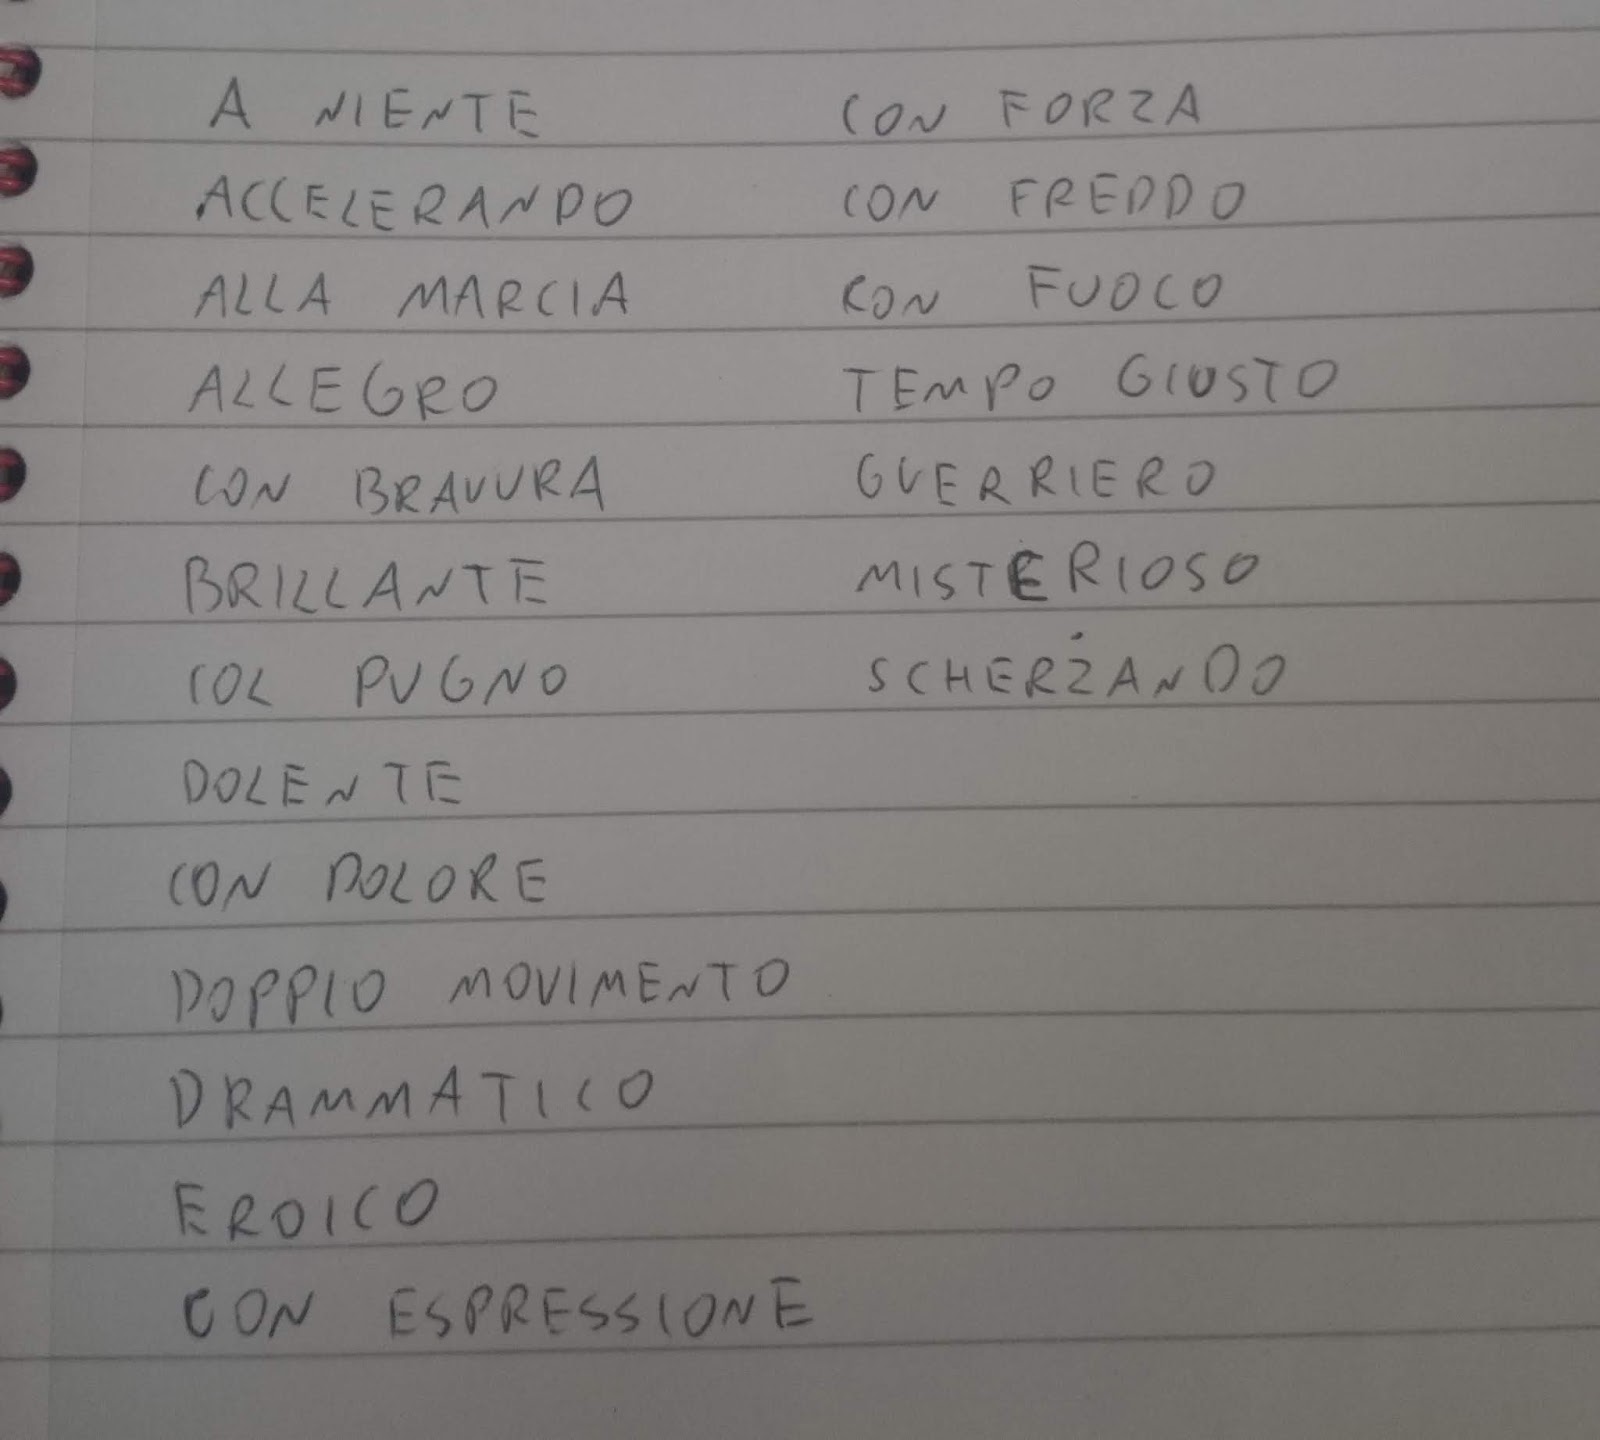 A NIENTE
ACCELERANDO
ALLA MARCIA
ALLEGRO
CON BRAVURA
BRILLANTE
COL PUGNO
DOLENTE
CON DOLORE
DOPPIO MOVIMENTO
DRAMMATICO
EROICO
CON ESPRESSIONE
CON FORZA
CON FREDDO
CON FUOCO
TEMPO GIUSTO
GUERRIERO
MISTERIOSO
SCHERŻANDO